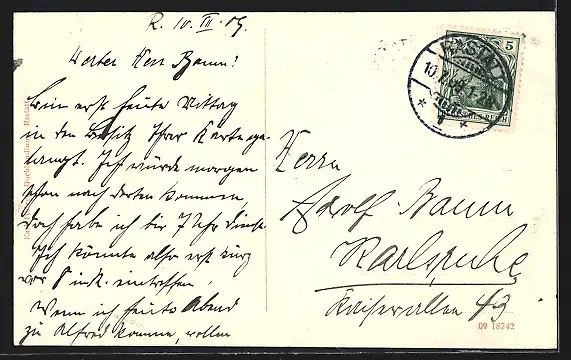 R. 10. VII. 09.
Werter Herr Baum!
Bin erst heute Mittag
in den Besitz Ihrer Karte ge-
langt. Ich würde morgen
schon nach dorten kommen,
doch habe ich bis 7 Uhr Dienst.
Ich könnte also erst kurz
vor 8 Uhr eintreffen.
Wenn ich heute Abend
zu Alfred komme, wollen
Herrn
Adolf Baum
Karlsruhe
Kaiserallee 49
RASTATT
10.7.09
5
DEUTSCHES REICH
09 18742